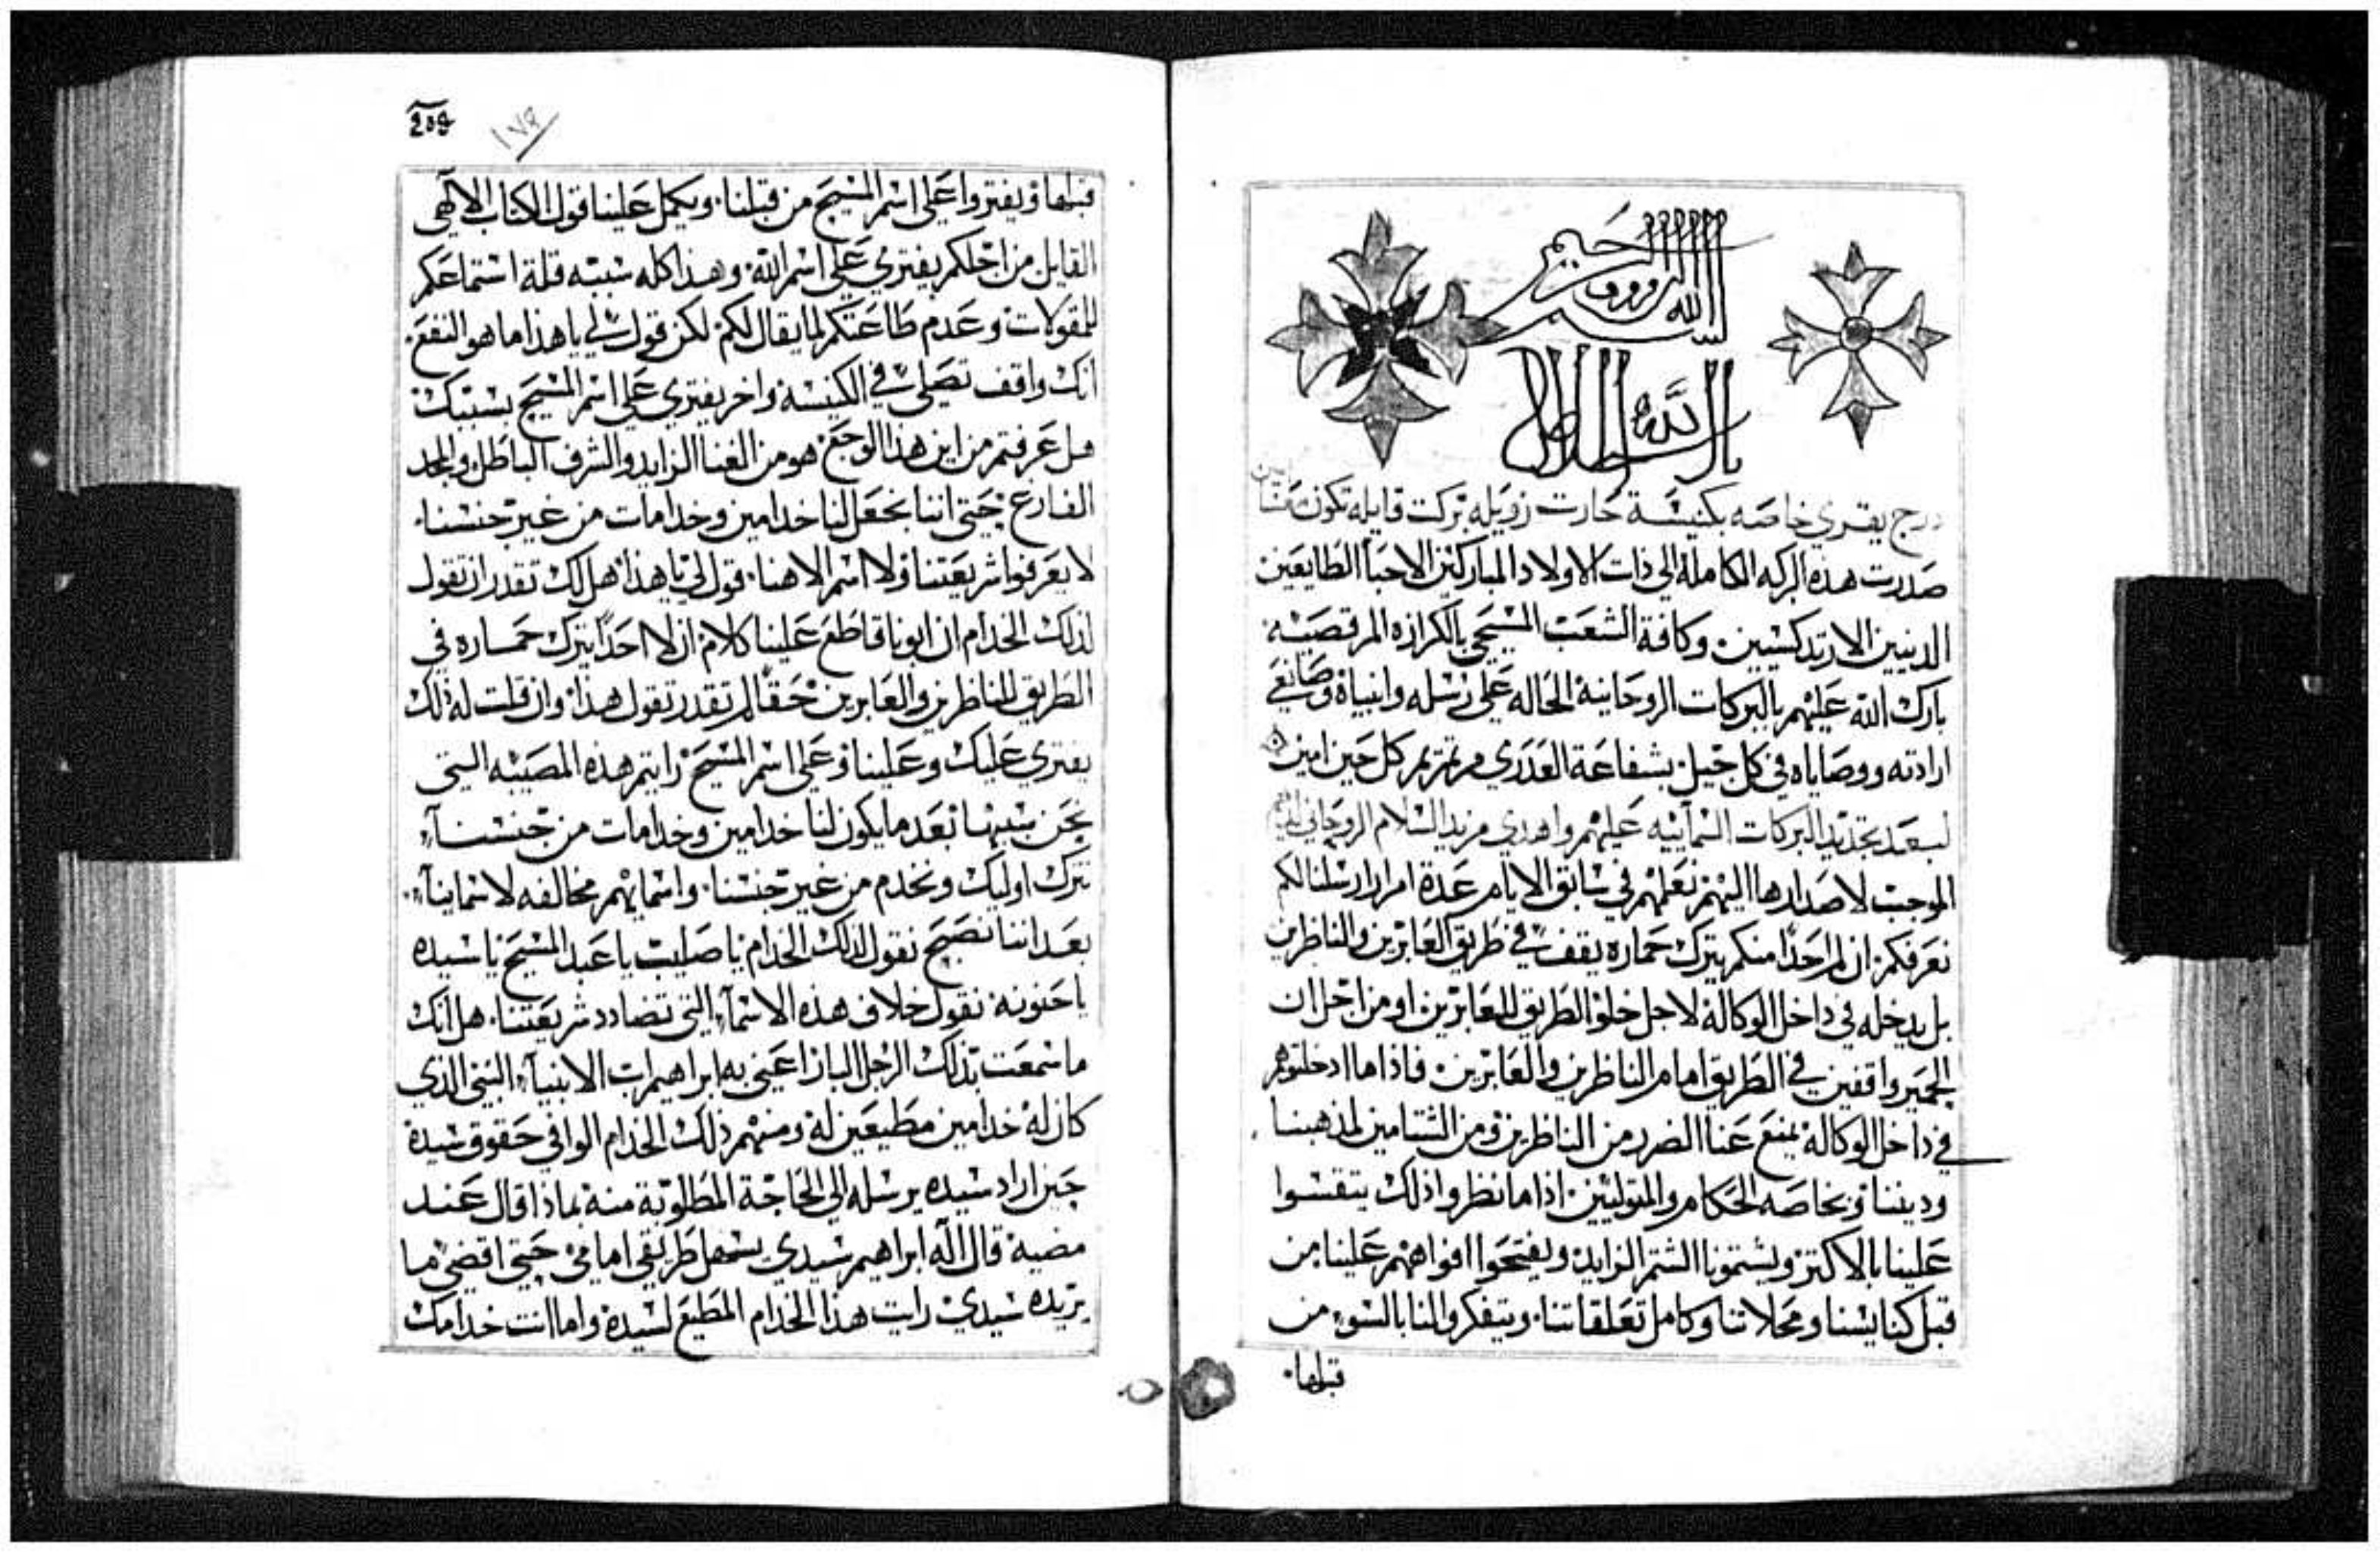 بسم الله الرووف الرحيم
بالله الخلاص
درج يقري خاصه بكنيسة حارت زويله بركت قايله تكون معنا امين
صدرت هذه البركه الكامله الي ذات الاولاد المباركين الاحبا الطايعين
الدينيين الارتدكسيين وكافة الشعب المسيحي بالكرازه المرقصيه
بارك الله عليهم بالبركات الروحانيه الحاله علي رسله وانبياه وصانعي
ارادته ووصاياه في كل جيل بشفاعة العدري مرتمريم كل حين امين
لبعد تجديد البركات السمآييه عليهم واهدي مزيد السلام الروحاني اليهم
الموجب لاصدارها اليهم نعلمهم في سابق الايام عدة امرار ارسلنا لكم
نعرفكم ان لم احدًا منكم يترك حماره يقف في طريق العابرين والناظرين
بل يدخله في داخل الوكالة لاجل خلو الطريق للعابرين او من اجل ان
الحمير واقفين في الطريق امام الناظرين والعابرين فاذا ما ادخلتوهم
في داخل الوكالة يمنع عنا الضرر من الناظرين ومن الشتامين لمذهبنا
وديننا وبخاصه الحكام والمتوليين اذا ما نظروا ذلك يتقسوا
علينا بالاكتر ويشتمونا الشتم الزايد ويفتحوا افواههم علينا من
قبل كنايسنا ومحلاتنا وكامل تعلقاتنا ويتفكروا لنا بالسوء من
قبلها
209
١٧٩
قبلها ويفتروا علي اسم المسيح من قبلنا ويكمل علينا قول الكتاب الالآهي
القايل من اجلكم يفتري علي اسم الله وهذا كله سببه قلة استماعكم
للمقولات وعدم طاعتكم لما يقال لكم لكن قول لي يا هذا ما هو النفع
انك واقف تصلي في الكنيسة واخر يفتري علي اسم المسيح بسببك
هل عرفتم من اين هذا الوجع هو من الغنا الزايد والشرف الباطل والمجد
الفارغ حتي اننا نجعل لنا خدامين وخدامات من غير جنسنا
لا يعرفوا شريعتنا ولا اسم الاهنا قول لي يا هذا هل لك تقدر ان تقول
لذلك الخدام ان ابونا قاطع علينا كلام ان لا احدًا يترك حماره في
الطريق للناظرين والعابرين حقًا لم تقدر تقول هذا وان قلت له ذلك
يفتري عليك وعلينا وعلي اسم المسيح رايتم هذه المصيبه التي
نحن سببها بعد ما يكون لنا خدامين وخدامات من جنسنآ
نترك اوليك ونخدم من غير جنسنا واسمايهم مخالفه لاسماينآ
بعد اننا نصيح نقول لذلك الخدام يا صليب يا عبد المسيح يا سيده
يا حنونه نقول خلاف هذه الاسمآ التي تضادد شريعتنا هل انك
ما سمعت بذلك الرجل البار اعني به ابراهيم اب الابنيآ النبي الذي
كان له خدامين مطيعين له ومنهم ذلك الخدام الوافي حقوق سيده
حين اراد سيده يرسله الي الحاجة المطلوبة منه بماذا قال عند
مضيه قال اله ابراهيم سيدي يسهل طريقي امامي حتي اقضي ما
يريده سيدي رايت هذا الخدام المطيع لسيده واما انت خدامك